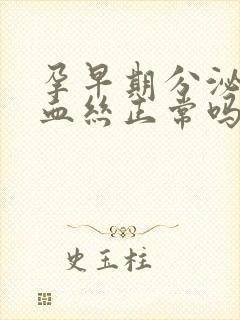 孕早期分泌
血丝正常吗
史玉柱